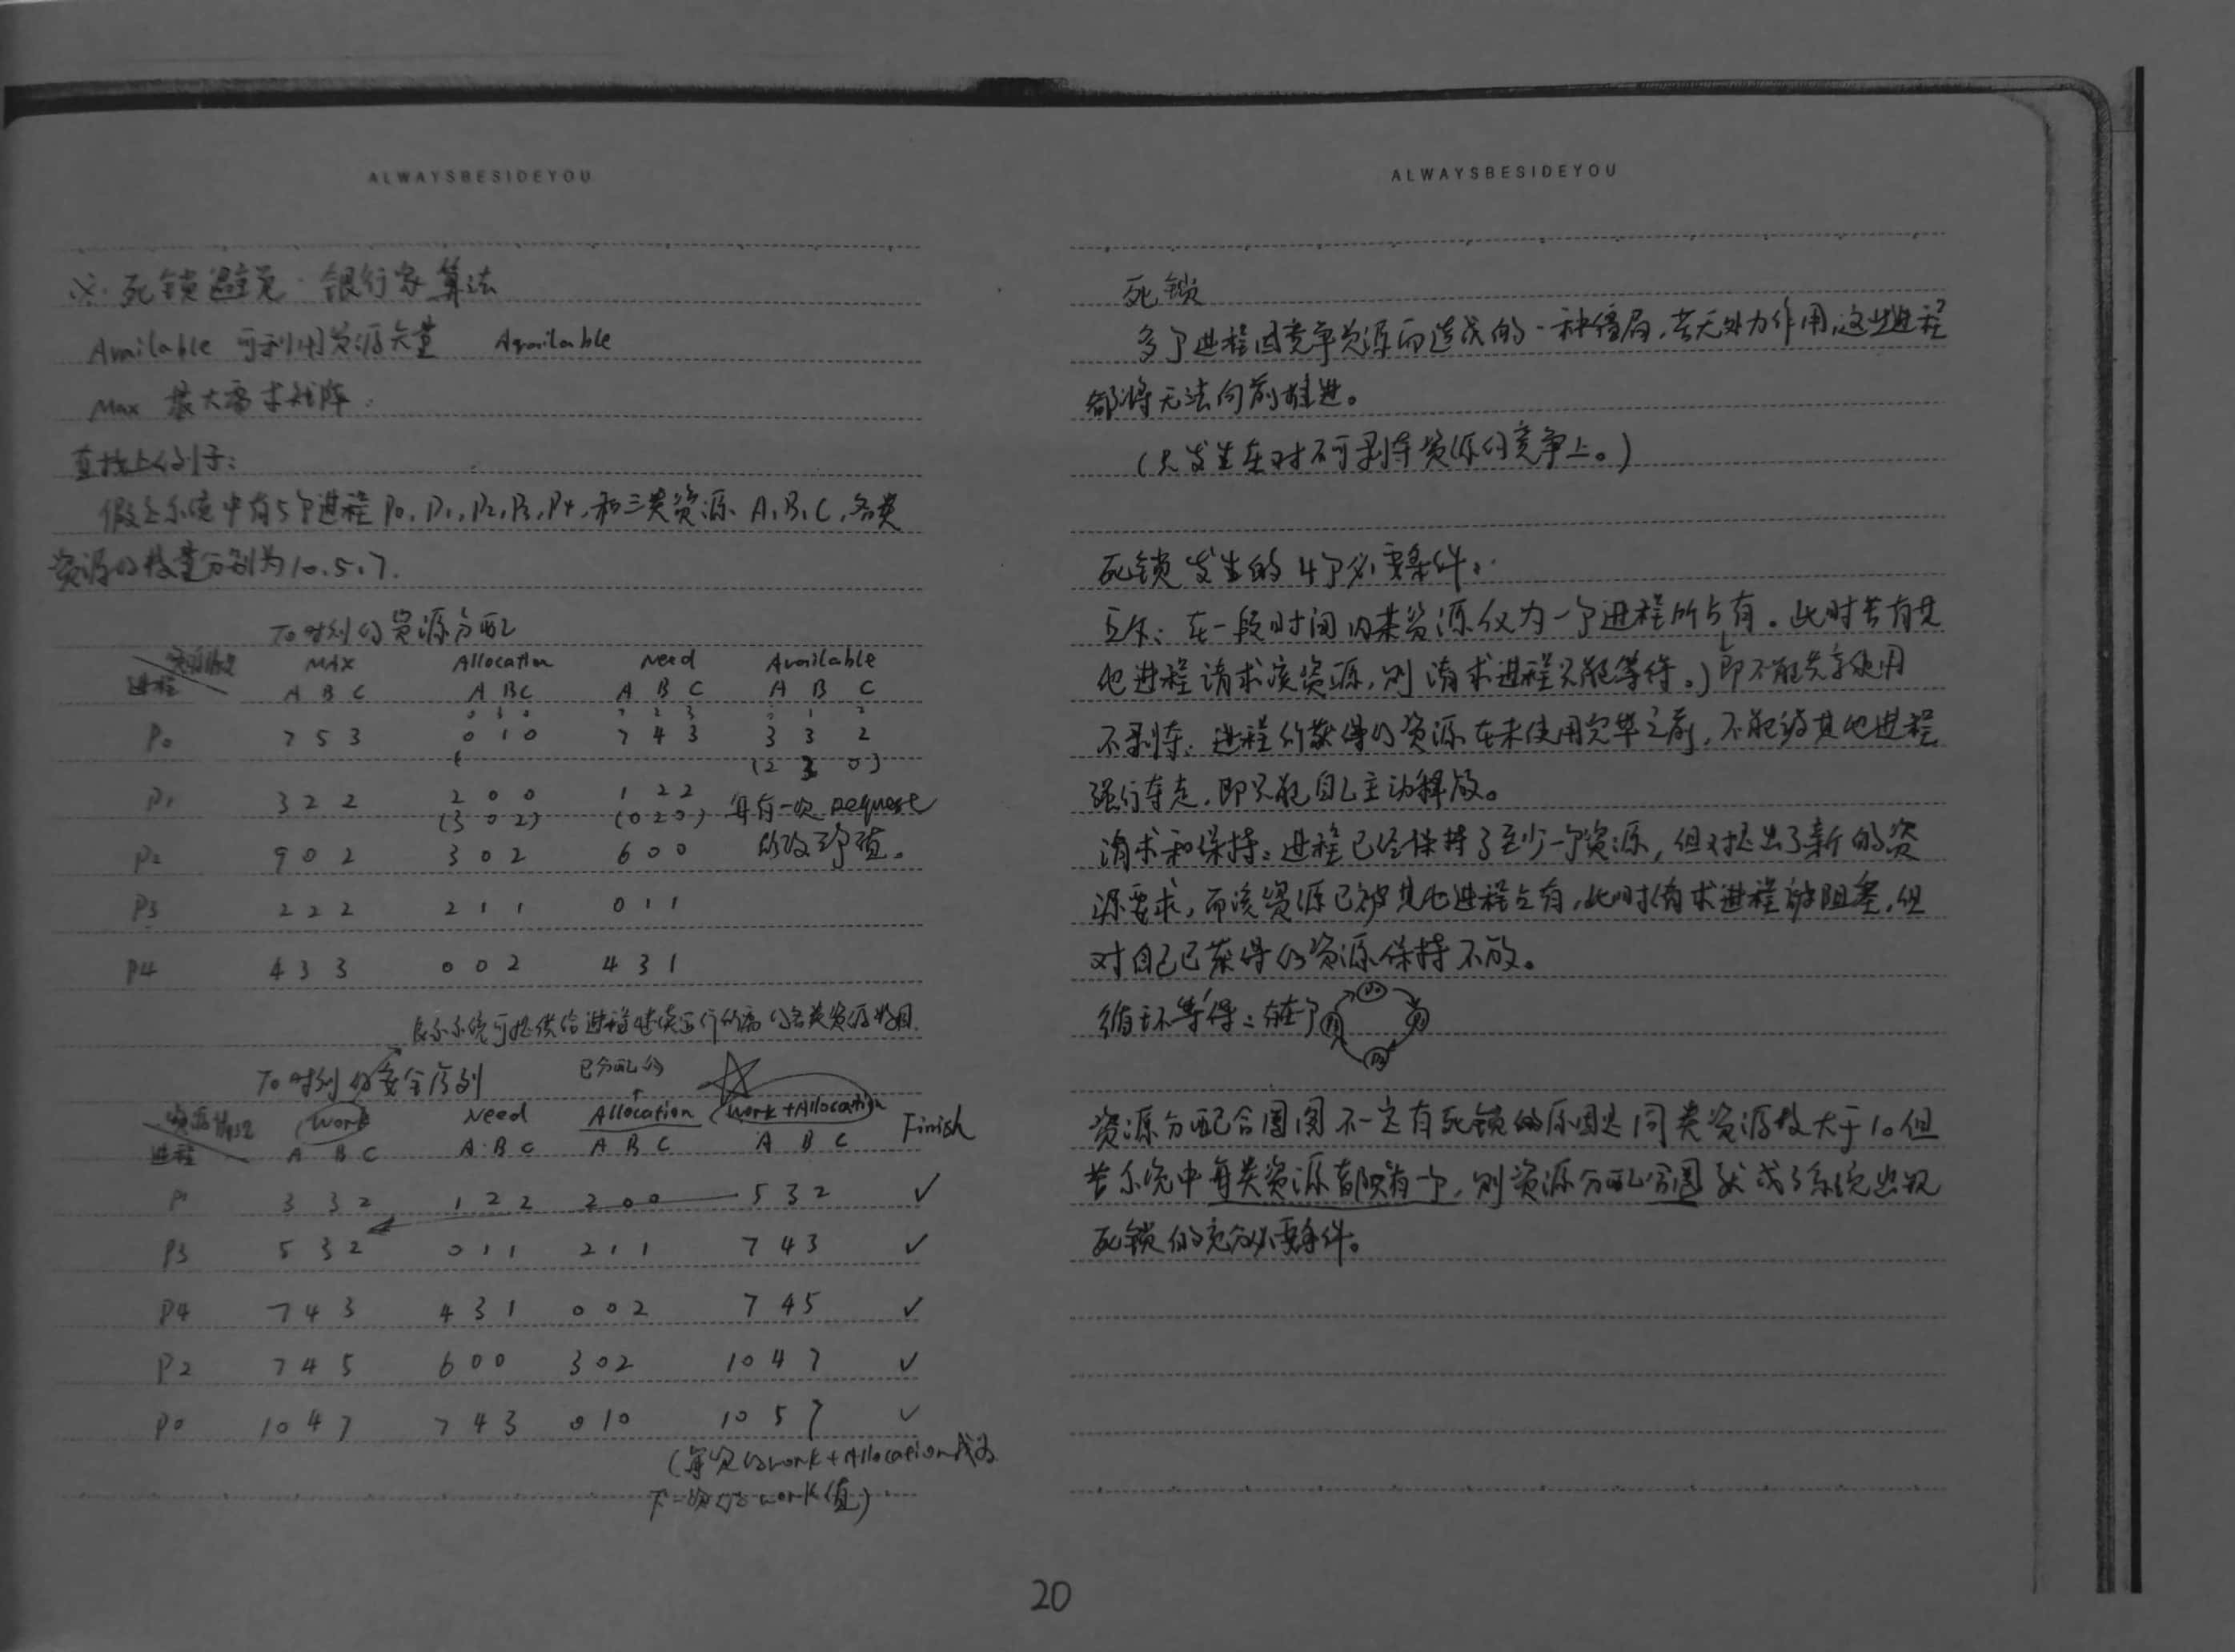 ALWAYSBESIDEYOU
※ 死锁避免 · 银行家算法
Available 可利用资源矢量 Available
Max 最大需求矩阵.
直接上例子:
假定系统中有5个进程 P0, P1, P2, P3, P4, 和三类资源 A, B, C, 各类
资源的数量分别为10.5.7.
T0时刻的资源分配
资源情况 MAX Allocation Need Available
进程 A B C A B C A B C A B C
0 3 0 7 2 3 2 1 2
P0 7 5 3 0 1 0 7 4 3 3 3 2
(2 3 0)
P1 3 2 2 2 0 0 1 2 2 每有一次 request
(3 0 2) (0 2 0)
P2 9 0 2 3 0 2 6 0 0 所改
P3 2 2 2 2 1 1 0 1 1
P4 4 3 3 0 0 2 4 3 1
表示系统可提供给进程继续运行所需的各类资源数目.
T0时刻的安全序列 已分配的
资源情况 Work Need Allocation Work+Allocation Finish
进程 A B C A B C A B C A B C
P1 3 3 2 1 2 2 2 0 0 5 3 2 ✓
P3 5 3 2 0 1 1 2 1 1 7 4 3 ✓
P4 7 4 3 4 3 1 0 0 2 7 4 5 ✓
P2 7 4 5 6 0 0 3 0 2 10 4 7 ✓
P0 10 4 7 7 4 3 0 1 0 10 5 7 ✓
(每次的work+Allocation成为
下一次的work值)
ALWAYSBESIDEYOU
死锁
多个进程因竞争资源而造成的一种僵局,若无外力作用,这些进程
都将无法向前推进。
(只发生在对不可剥夺资源的竞争上。)
死锁发生的4个必要条件:
互斥: 在一段时间内某资源仅为一个进程所占有。此时若有其
他进程请求该资源,则请求进程只能等待。) 即不能共享使用
不剥夺: 进程所获得的资源在未使用完毕之前,不能被其他进程
强行夺走,即只能自己主动释放。
请求和保持: 进程已经保持了至少一个资源,但又提出了新的资
源要求,而该资源已被其他进程占有,此时请求进程被阻塞,但
对自己已获得的资源保持不放。
循环等待: 存在个
资源分配含圈图不一定有死锁的原因是同类资源数大于1。但
若系统中每类资源都只有一个,则资源分配含圈就成了系统出现
死锁的充分必要条件。
20